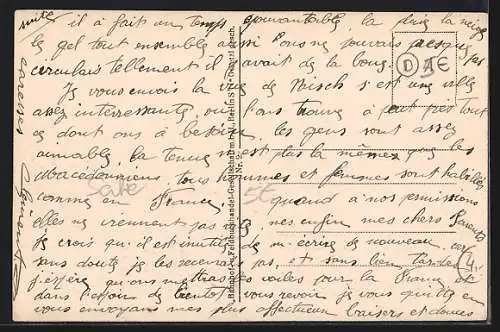 suite il a fait un temps épouvantable la pluie la neige
le gel tout ensemble aussi l'ons ne pouvais presque pas
circulais tellement il avait de la boue.
Je vous envois la vue de Nisch s'est une ville
assez interressante, ou l'ons trouve à peut près tout
ce dont ons à besoin, les gens sont assez
aimables, la tenue n'est plus la même que les
Macédoniens, tous hommes et femmes sont habillés
comme en France, quand à nos permissions
elles ne viennent pas vite enfin mes chers Parents
Je crois qu'il est inutile de m'écrire de nouveau car
sans doute je les recevrais pas, et sans bien tarder
j'espère qu'ons mettras les voiles pour la France et
dans l'espoir de bientot vous revoir je vous quitte en
vous envoyant mes plus affectueux baisers et douces
caresses
Bahnhof- u. Feldbuchhandel-Gesellschaft m.b.H., Berlin S
Nr. 2.
D
5€